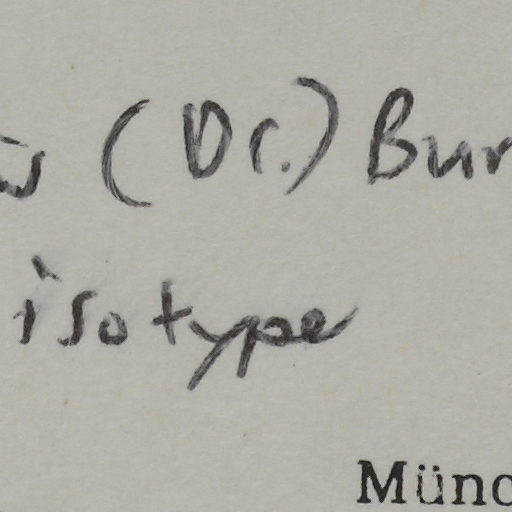 (Dr.) Bur
isotype
Münc